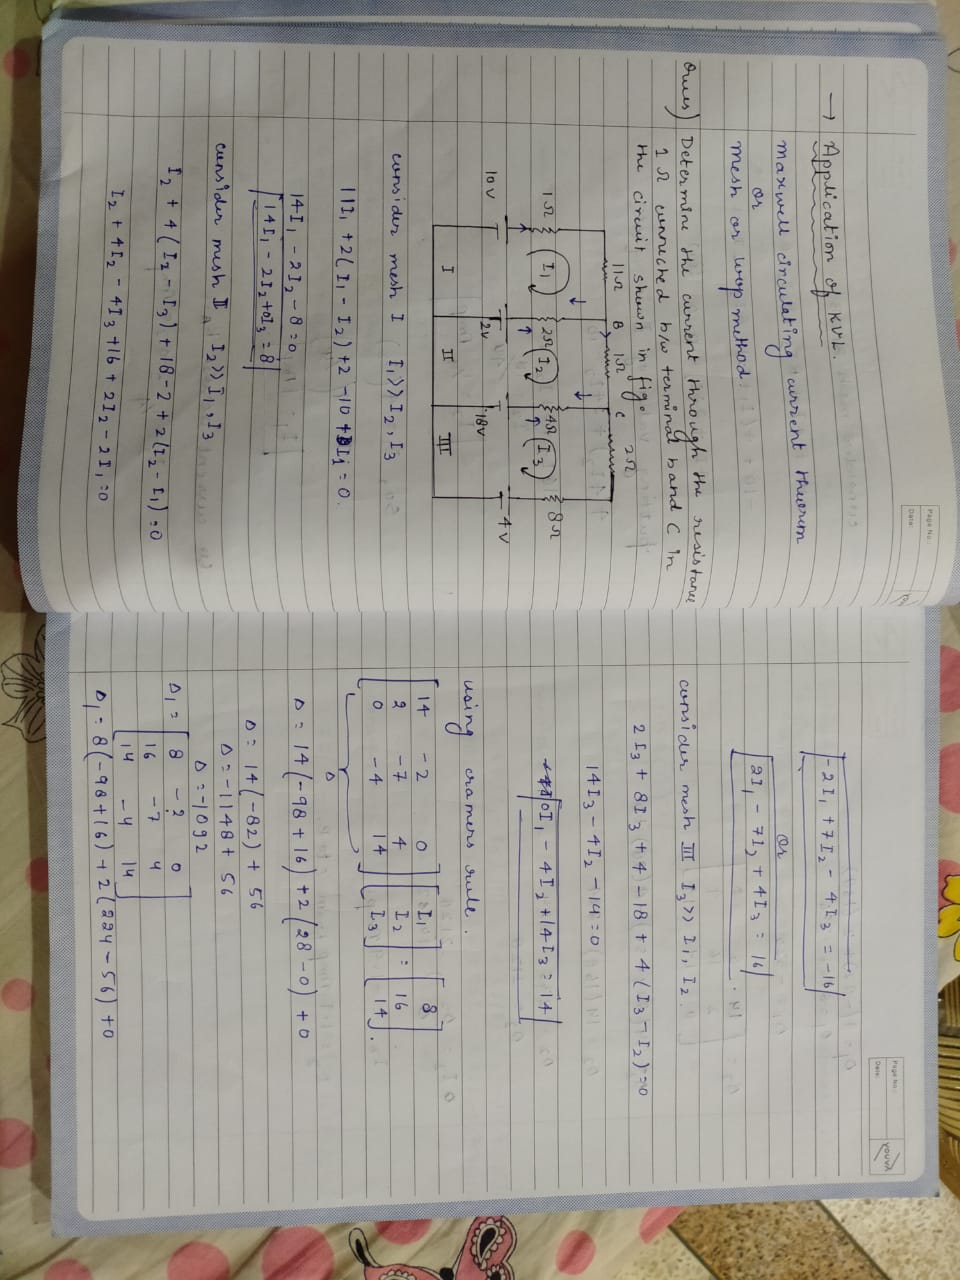 Page No.:
Date:
→ Application of KVL.
maxwell circulating current theorem
or
mesh or loop method.
Ques) Determine the current through the resistance
1Ω connected b/w terminal b and C in
the circuit shown in fig.
11Ω B 1Ω C 2Ω
1Ω I₁ 2Ω I₂ 4Ω I₃ 8Ω
10V 2V 18V 4V
I II III
consider mesh I I₁ >> I₂, I₃
11I₁ + 2(I₁ - I₂) + 2 - 10 + I₁ = 0.
14I₁ - 2I₂ - 8 = 0
14I₁ - 2I₂ + 0I₃ = 8
consider mesh II I₂ >> I₁, I₃
I₂ + 4(I₂ - I₃) + 18 - 2 + 2(I₂ - I₁) = 0
I₂ + 4I₂ - 4I₃ + 16 + 2I₂ - 2I₁ = 0
Page No.:
Date:
YOUVA
-2I₁ + 7I₂ - 4I₃ = -16
or
2I₁ - 7I₂ + 4I₃ = 16
consider mesh III I₃ >> I₁, I₂
2I₃ + 8I₃ + 4 - 18 + 4(I₃ - I₂) = 0
14I₃ - 4I₂ - 14 = 0
0I₁ - 4I₂ + 14I₃ = 14
using cramers rule.
14 -2 0 I₁ 8
2 -7 4 I₂ = 16
0 -4 14 I₃ 14.
Δ
Δ = 14(-98 + 16) + 2(28 - 0) + 0
Δ = 14(-82) + 56
Δ = -1148 + 56
Δ = -1092
Δ₁ = 8 -2 0
16 -7 4
14 -4 14
Δ₁ = 8(-98 + 16) + 2(224 - 56) + 0